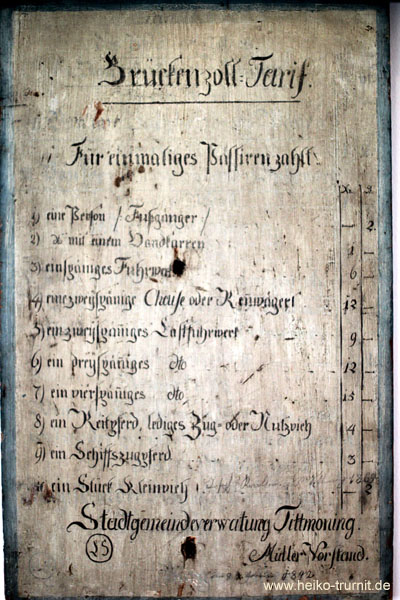 Brückenzoll=Tarif.
Für einmaliges Passiren zahlt
Xr. S.
1) eine Person /: Fußgänger :/ — 2.
2) dto mit einem Handkarren 1 —
3) einspäniges Fuhrwerk 6 —
4) eine zweyspänige Chaise oder Renwägerl 12 —
5) ein zweyspäniges Lastfuhrwerk 9 —
6) ein dreyspäniges dto 12 —
7) ein vierspäniges dto 15 —
8) ein Reitpferd, lediges Zug= oder Nutzvieh 4 —
9) ein Schiffszugpferd 3 —
10 ein Stück Kleinvieh — 2
Stadtgemeindeverwaltung Tittmoning.
LS Müller Vorstand.
1892
www.heiko-trurnit.de